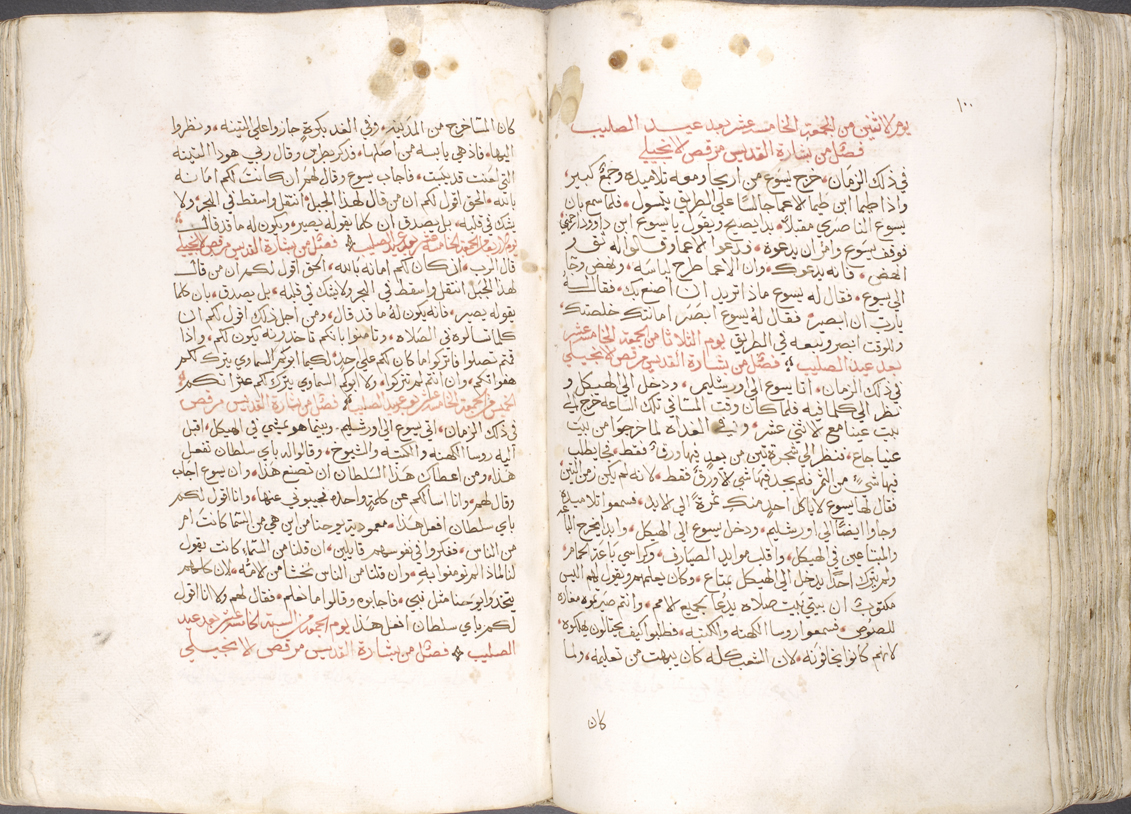 ١٠٠
يوم لاثنين من الجمعة الخامسة عشر بعد عيد الصليب
فصل من بشارة القديس مرقص لانجيلي
في ذلك الزمان، خرج يسوع من اريحا ومعه تلاميذه وجمع كبير،
واذا طيما ابن طيما لاعما جالسا علي الطريق يتسول، فلما سمع بان
يسوع الناصري مقبلا، بدا يصيح ويقول يا يسوع ابن داوود ارحمني
فوقف يسوع وامر ان يدعوه، فدعوا لاعما وقالوا له ثق
انهض، فانه يدعوك، وان لاعما طرح لباسه، ونهض وجا
الي يسوع، فقال له يسوع ماذا تريد ان اصنع بك، فقال له
يارب ان ابصر، فقال له يسوع ابصر امانتك خلصتك،
وللوقت ابصر وتبعه في الطريق يوم الثلاثا من الجمعة الخامسة عشر
بعد عيد الصليب فصل من بشارة القديس مرقص لانجيلي
في ذلك الزمان، اتا يسوع الي اورشليم، ودخل الي الهيكل و
نظر الي كلما فيه فلما كان وقت المسا في تلك الساعه خرج الي
بيت عنيا مع لاثني عشر، وفي الغداة لما خرجوا من بيت
عنيا جاع، فنظر الي شجرة تين من بعد فيها ورق فقط، فجا يطلب
فيها شي من الثمر فلم يجد فيها شي لا ورق فقط، لانه لم يكن زمن التين
فقال لها يسوع لا ياكل احد منك ثمرة الي لابد، فسمعوا تلاميذه
وجاوا ايضا الي اورشليم، ودخل يسوع الي الهيكل، وابدا يخرج الباعه
والمبتاعين في الهيكل، واقلب موايد الصيارف، وكراسي باعة الحمام
ولم يترك احدا يدخل الي الهيكل بمتاع، وكان يعلمهم ويقول لهم اليس
مكتوب ان بيتي بيت صلاه يدعا لجميع لامم، وانتم صيرتموه مغارة
للصوص، فسمعوا روسا الكهنه والكتبه، فطلبوا كيف يحتالون يهلكوه،
لانهم كانوا يخافونه، لان الشعب كله كان يبهت من تعليمه، ولما
كان
كان المسا خرج من المدينه، وفي الغد بكرة جازوا علي التينه، ونظروا
اليها، فاذ هي يابسه من اصلها، فذكر بطرس وقال ربي هوذا التينه
التي لعنت قد يبست، فاجاب يسوع وقال لهم ان كانت لكم امانه
بالله، الحق اقول لكم ان من قال لهذا الجبل انتقل واسقط في البحر ولا
يشك في قلبه، بل يصدق ان كلما يقوله يصير، ويكون له ما قد قال
يوم لاربعا من الجمعة الخامسة عشر بعد عيد الصليب فصل من بشارة القديس مرقص لانجيلي
قال الرب، ان كان لكم امانه بالله، الحق اقول لكم ان من قال
لهذا الجبل انتقل واسقط في البحر ولا يشك في قلبه، بل يصدق، بان كلما
يقوله يصير، فانه يكون له ما قد قال، ومن اجل ذلك اقول لكم ان
كلما تسالوه في الصلاه، وتامنوا بانكم تاخذونه يكون لكم، واذا
قمتم تصلوا فاتركوا ما كان لكم علي احد، لكيما ابوكم السماوي يترك لكم
هفواتكم، وان انتم لم تتركوا، ولا ابوكم السماوي يترك لكم عثراتكم
الخميس من الجمعة الخامسة عشر بعد عيد الصليب فصل من بشارة القديس مرقص
في ذلك الزمان، اتي يسوع الي اورشليم، وبينما هو يمشي في الهيكل، اقبل
اليه روسا الكهنه والكتبه والشيوخ، وقالوا له باي سلطان تفعل
هذا، ومن اعطاك هذا السلطان ان تصنع هذا، وان يسوع اجاب
وقال لهم، وانا اسالكم عن كلمة واحده فجيبوني عنها، وانا اقول لكم
باي سلطان افعل هذا، معمودية يوحنا من اين هي من السما كانت ام
من الناس، ففكروا في نفوسهم قايلين، ان قلنا من السماء كانت يقول
لنا لماذا لم تومنوا به، وان قلنا من الناس نخشا من لامه، لان كلهم
يتخذوا يوحنا مثل نبي، فاجابوه وقالوا ما نعلم، فقال لهم ولا انا اقول
لكم باي سلطان افعل هذا يوم الجمعه من السبة الخامسة عشر بعد عيد
الصليب فصل من بشارة القديس مرقص لانجيلي